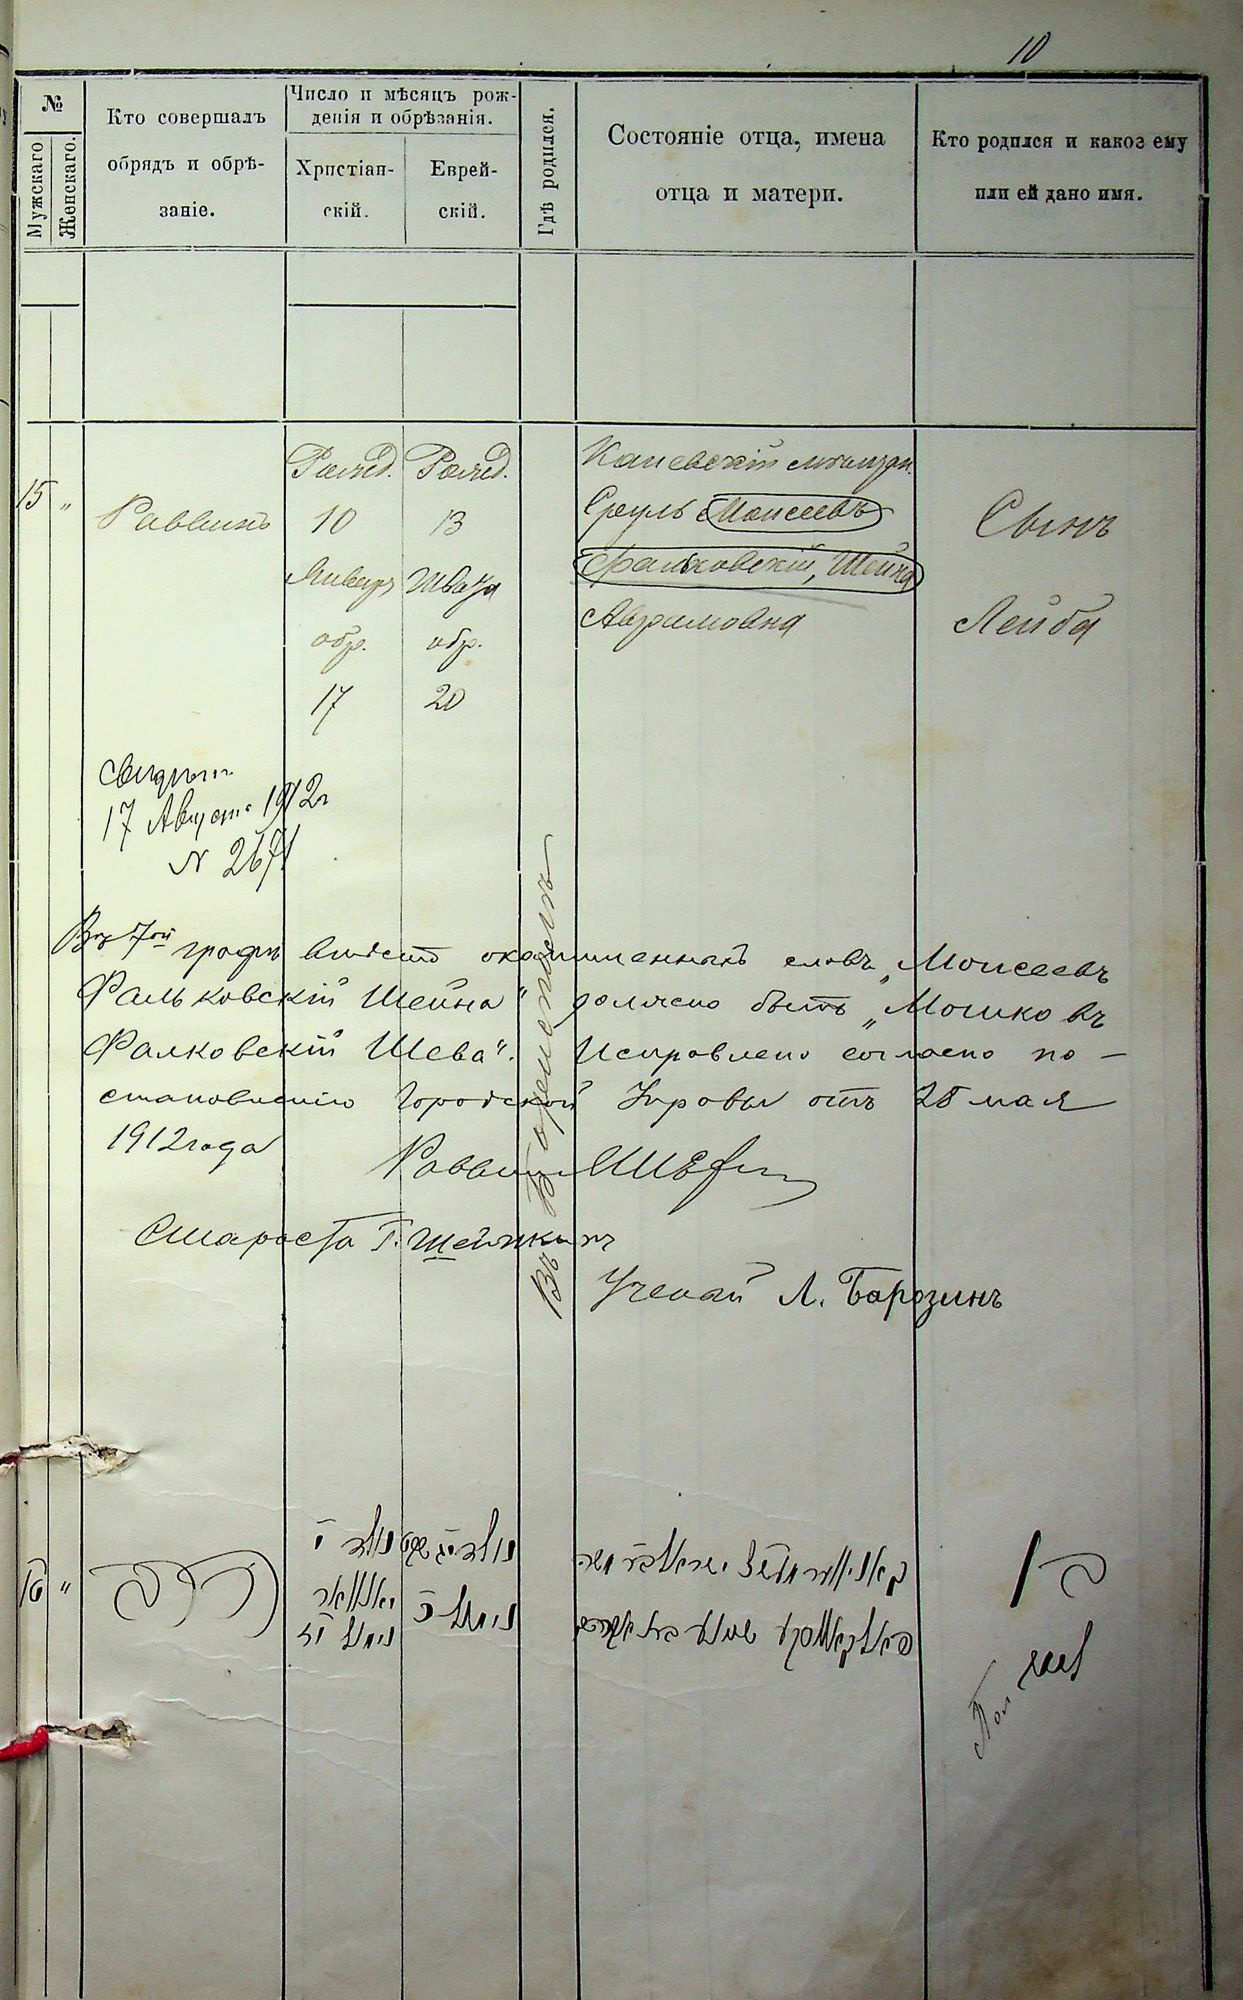 10
№
Мужскаго
Женскаго.
Кто совершалъ
обрядъ и обрѣ-
заніе.
Число и мѣсяцъ рож-
денія и обрѣзанія.
Христіан-
скій.
Еврей-
скій.
Гдѣ родился.
Состояніе отца, имена
отца и матери.
Кто родился и какое ему
или ей дано имя.
15 "
Раввинъ
Рожд.
10
Январь
обр.
17
Рожд.
13
Швата
обр.
20
Каневскій мѣщан.
Сруль Моисеевъ
Фальковскій, Шейна
Аврамовна
Сынъ
Лейба
17 Август. 1912 г
N 2671
Въ 7ой графѣ вмѣсто окаймленныхъ словъ „Моисеевъ
Фальковскій Шейна" должно быть „Мошковъ
Фалковскій Шева". Исправлено согласно по-
становленію Городской Управы отъ 28 мая
1912 года
Раввинъ
Староста Г. Шейнкинъ
Ученый Л. Барозинъ
Въ
16 "
הרב
נולד י
יאנואר
נימול יז
נימול כ
בן